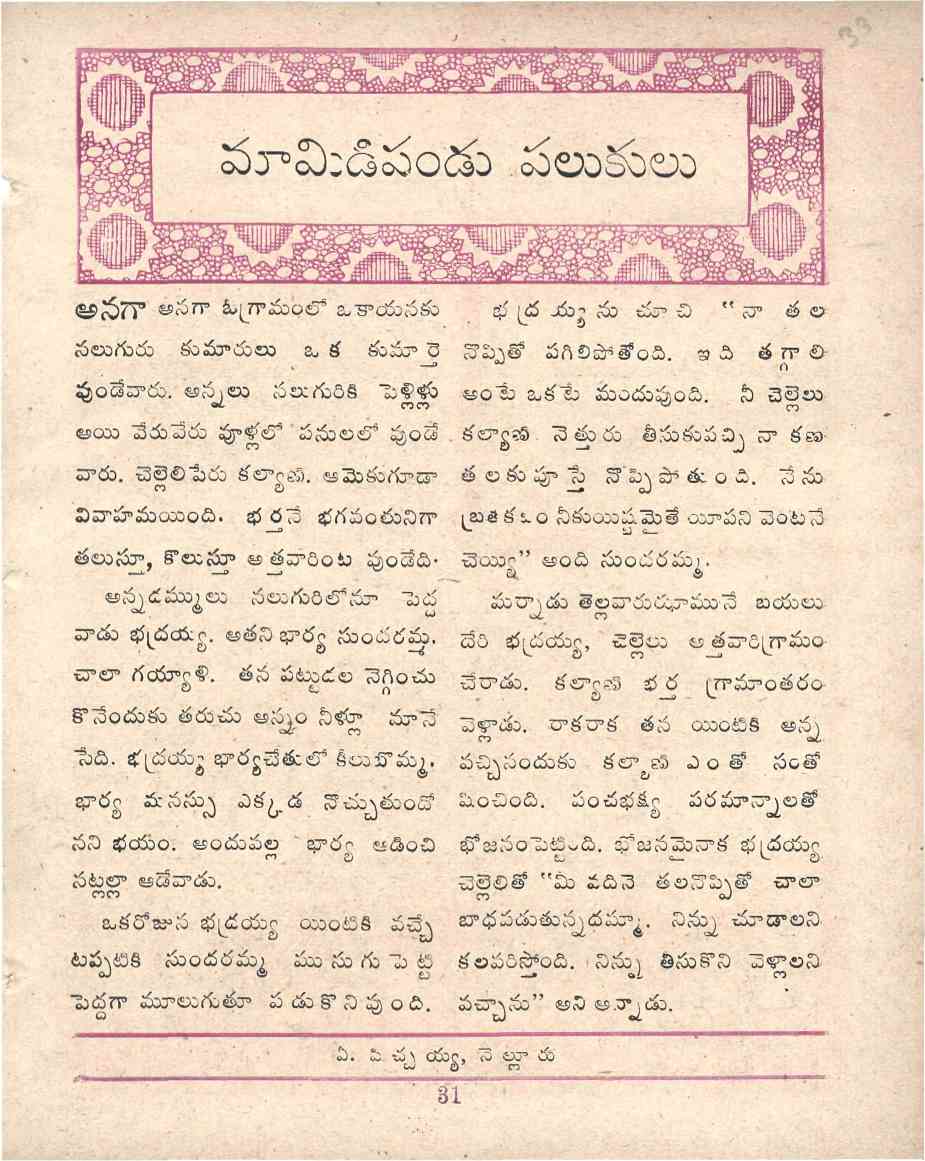 33
మామిడిపండు పలుకులు
అనగా అనగా ఓగ్రామంలో ఒకాయనకు
నలుగురు కుమారులు ఒక కుమార్తె
వుండేవారు. అన్నలు నలుగురికి పెళ్లిళ్లు
అయి వేరువేరు వూళ్లలో పనులలో వుండే
వారు. చెల్లెలిపేరు కల్యాణి. ఆమెకుగూడా
వివాహమయింది. భర్తనే భగవంతునిగా
తలుస్తూ, కొలుస్తూ అత్తవారింట వుండేది.
అన్నదమ్ములు నలుగురిలోనూ పెద్ద
వాడు భద్రయ్య. అతనిభార్య సుందరమ్మ.
చాలా గయ్యాళి. తన పట్టుదల నెగ్గించు
కొనేందుకు తరుచు అన్నం నీళ్లూ మానే
సేది. భద్రయ్య భార్యచేతులో కీలుబొమ్మ.
భార్య మనస్సు ఎక్కడ నొచ్చుతుందో
నని భయం. అందువల్ల భార్య ఆడించి
నట్లల్లా ఆడేవాడు.
ఒకరోజున భద్రయ్య యింటికి వచ్చే
టప్పటికి సుందరమ్మ ముసుగుపెట్టి
పెద్దగా మూలుగుతూ పడుకొనివుంది.
భద్రయ్యను చూచి “నా తల
నొప్పితో పగిలిపోతోంది. ఇది తగ్గాలి
అంటే ఒకటే మందువుంది. నీ చెల్లెలు
కల్యాణి నెత్తురు తీసుకువచ్చి నా కణ
తలకుపూస్తే నొప్పిపోతుంది. నేను
బ్రతకటం నీకుయిష్టమైతే యీపని వెంటనే
చెయ్యి” అంది సుందరమ్మ.
మర్నాడు తెల్లవారుఝామునే బయలు
దేరి భద్రయ్య, చెల్లెలు అత్తవారిగ్రామం
చేరాడు. కల్యాణి భర్త గ్రామాంతరం
వెళ్లాడు. రాకరాక తన యింటికి అన్న
వచ్చినందుకు కల్యాణి ఎంతో సంతో
షించింది. పంచభక్ష్య పరమాన్నాలతో
భోజనంపెట్టింది. భోజనమైనాక భద్రయ్య
చెల్లెలితో “మీ వదినె తలనొప్పితో చాలా
బాధపడుతున్నదమ్మా. నిన్ను చూడాలని
కలవరిస్తోంది. నిన్ను తీసుకొని వెళ్లాలని
వచ్చాను” అని అన్నాడు.
ఏ. పిచ్చయ్య, నెల్లూరు
31